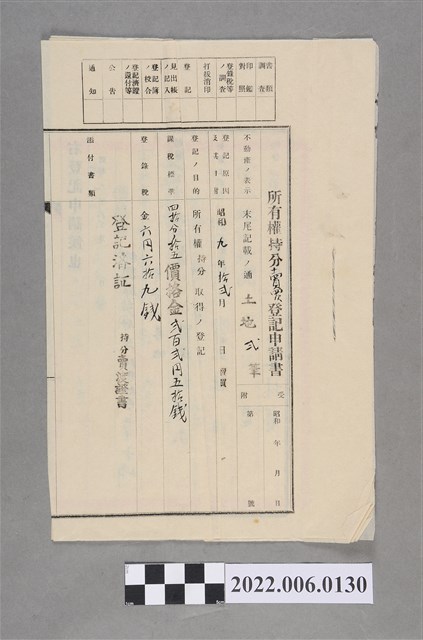 書類調査
印鑑對照
登錄稅等ノ調査
打拔消印
登記
見出帳ノ記入
登記簿ノ校合
登記濟證ノ還付等
公告
通知
所有權持分賣買登記申請書
受附
昭和 年 月 日
第 號
不動產ノ表示 末尾記載ノ通 土地 弍 筆
登記原因 昭和 九年 拾弍月 日
登記ノ目的 所有權 持分 取得ノ登記
課稅標準 四拾分ノ拾五 價格金弍百弍円五拾錢
登錄稅 金六円六拾九錢
添付書類
登記濟証
持分賣渡證書
2022.006.0130